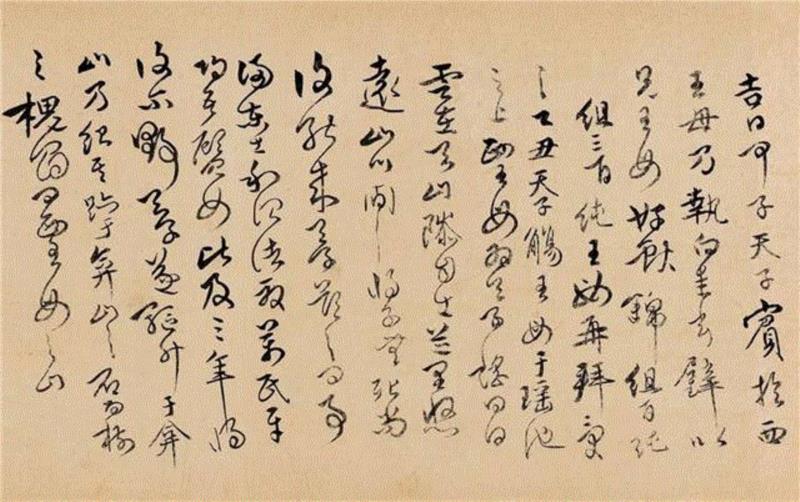 吉日甲子天子賓於西
王母乃執白圭玄璧以
見王母好獻錦組百純
組三百純王母再拜受
之乙丑天子觴王母于瑤池
之上西王母為天子謠曰白
雲在天山陵自出道里悠
遠山川間之將子無死尚
復能來天子答之曰予
歸東土和治諸夏萬民平
均吾顧女比及三年將
復而野天子遂驅升于弇
山乃紀其跡于弇山之石而樹
之槐眉曰西王母之山